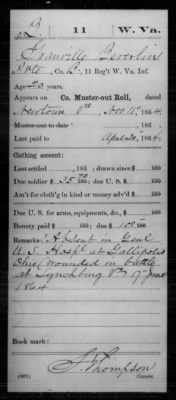 B | 11 | W. Va.
Granville Beverlin
Pvt., Co. B, 11 Reg't W. Va. Inf.
Age 20 years
Appears on
Co. Muster-out Roll, dated
Va. Nov 10, 1864.
Muster-out to date , 186 .
Last paid to Apr 30, 1864.
Clothing account:
Last settled , 186 ; drawn since $ 100
Due soldier $ 100; due U. S. $ 100
Am't for cloth'g in kind or money adv'd $ 100
Due U. S. for arms, equipments, &c., $ 100
Bounty paid $ 100; due $ 100 100
Remarks: Absent in Genl
U. S. Hosp. at Gallipolis
Ohio wounded in battle
at Lynchburg Va 17 June
1864
Book mark:
Thompson
(861) Copyist.